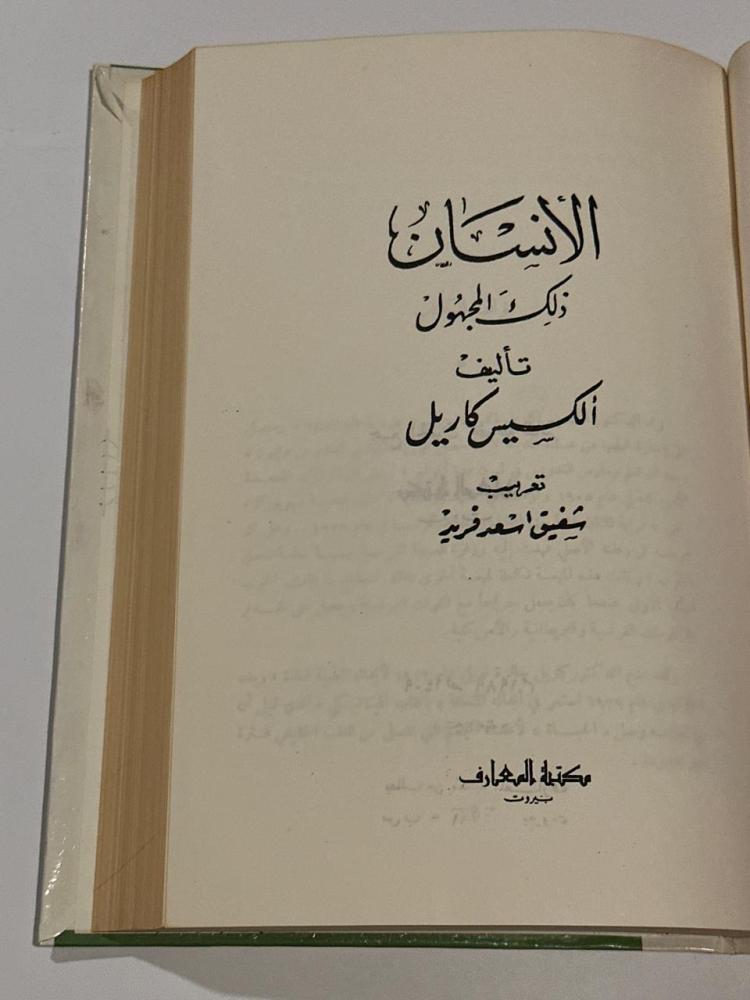 الأنسان
ذلك المجهول
تأليف
ألكسيس كاريل
تعريب
شفيق اسعد فريد
مكتبة المعارف
بيروت